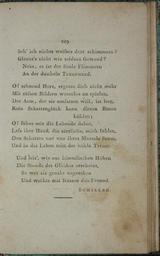 Seh' ich nichts weißes dort schimmern?
Glänzt's nicht wie seidnes Gewand?
Nein, es ist der Säule Flimmern
An der dunkeln Taxuswand.
O! sehnend Herz, ergötze dich nicht mehr
Mit süßen Bildern wesenlos zu spielen,
Der Arm, der sie umfassen will, ist leer,
Kein Schattenglück kann diesen Busen
kühlen;
O! führe mir die Lebende daher,
Laß ihre Hand, die zärtliche, mich fühlen,
Den Schatten nur von ihres Mantels Saum,
Und in das Leben tritt der hohle Traum.
Und leis', wie aus himmlischen Höhen
Die Stunde des Glückes erscheint,
So war sie genaht ungesehen
Und weckte mit Küssen den Freund.
SCHILLER.